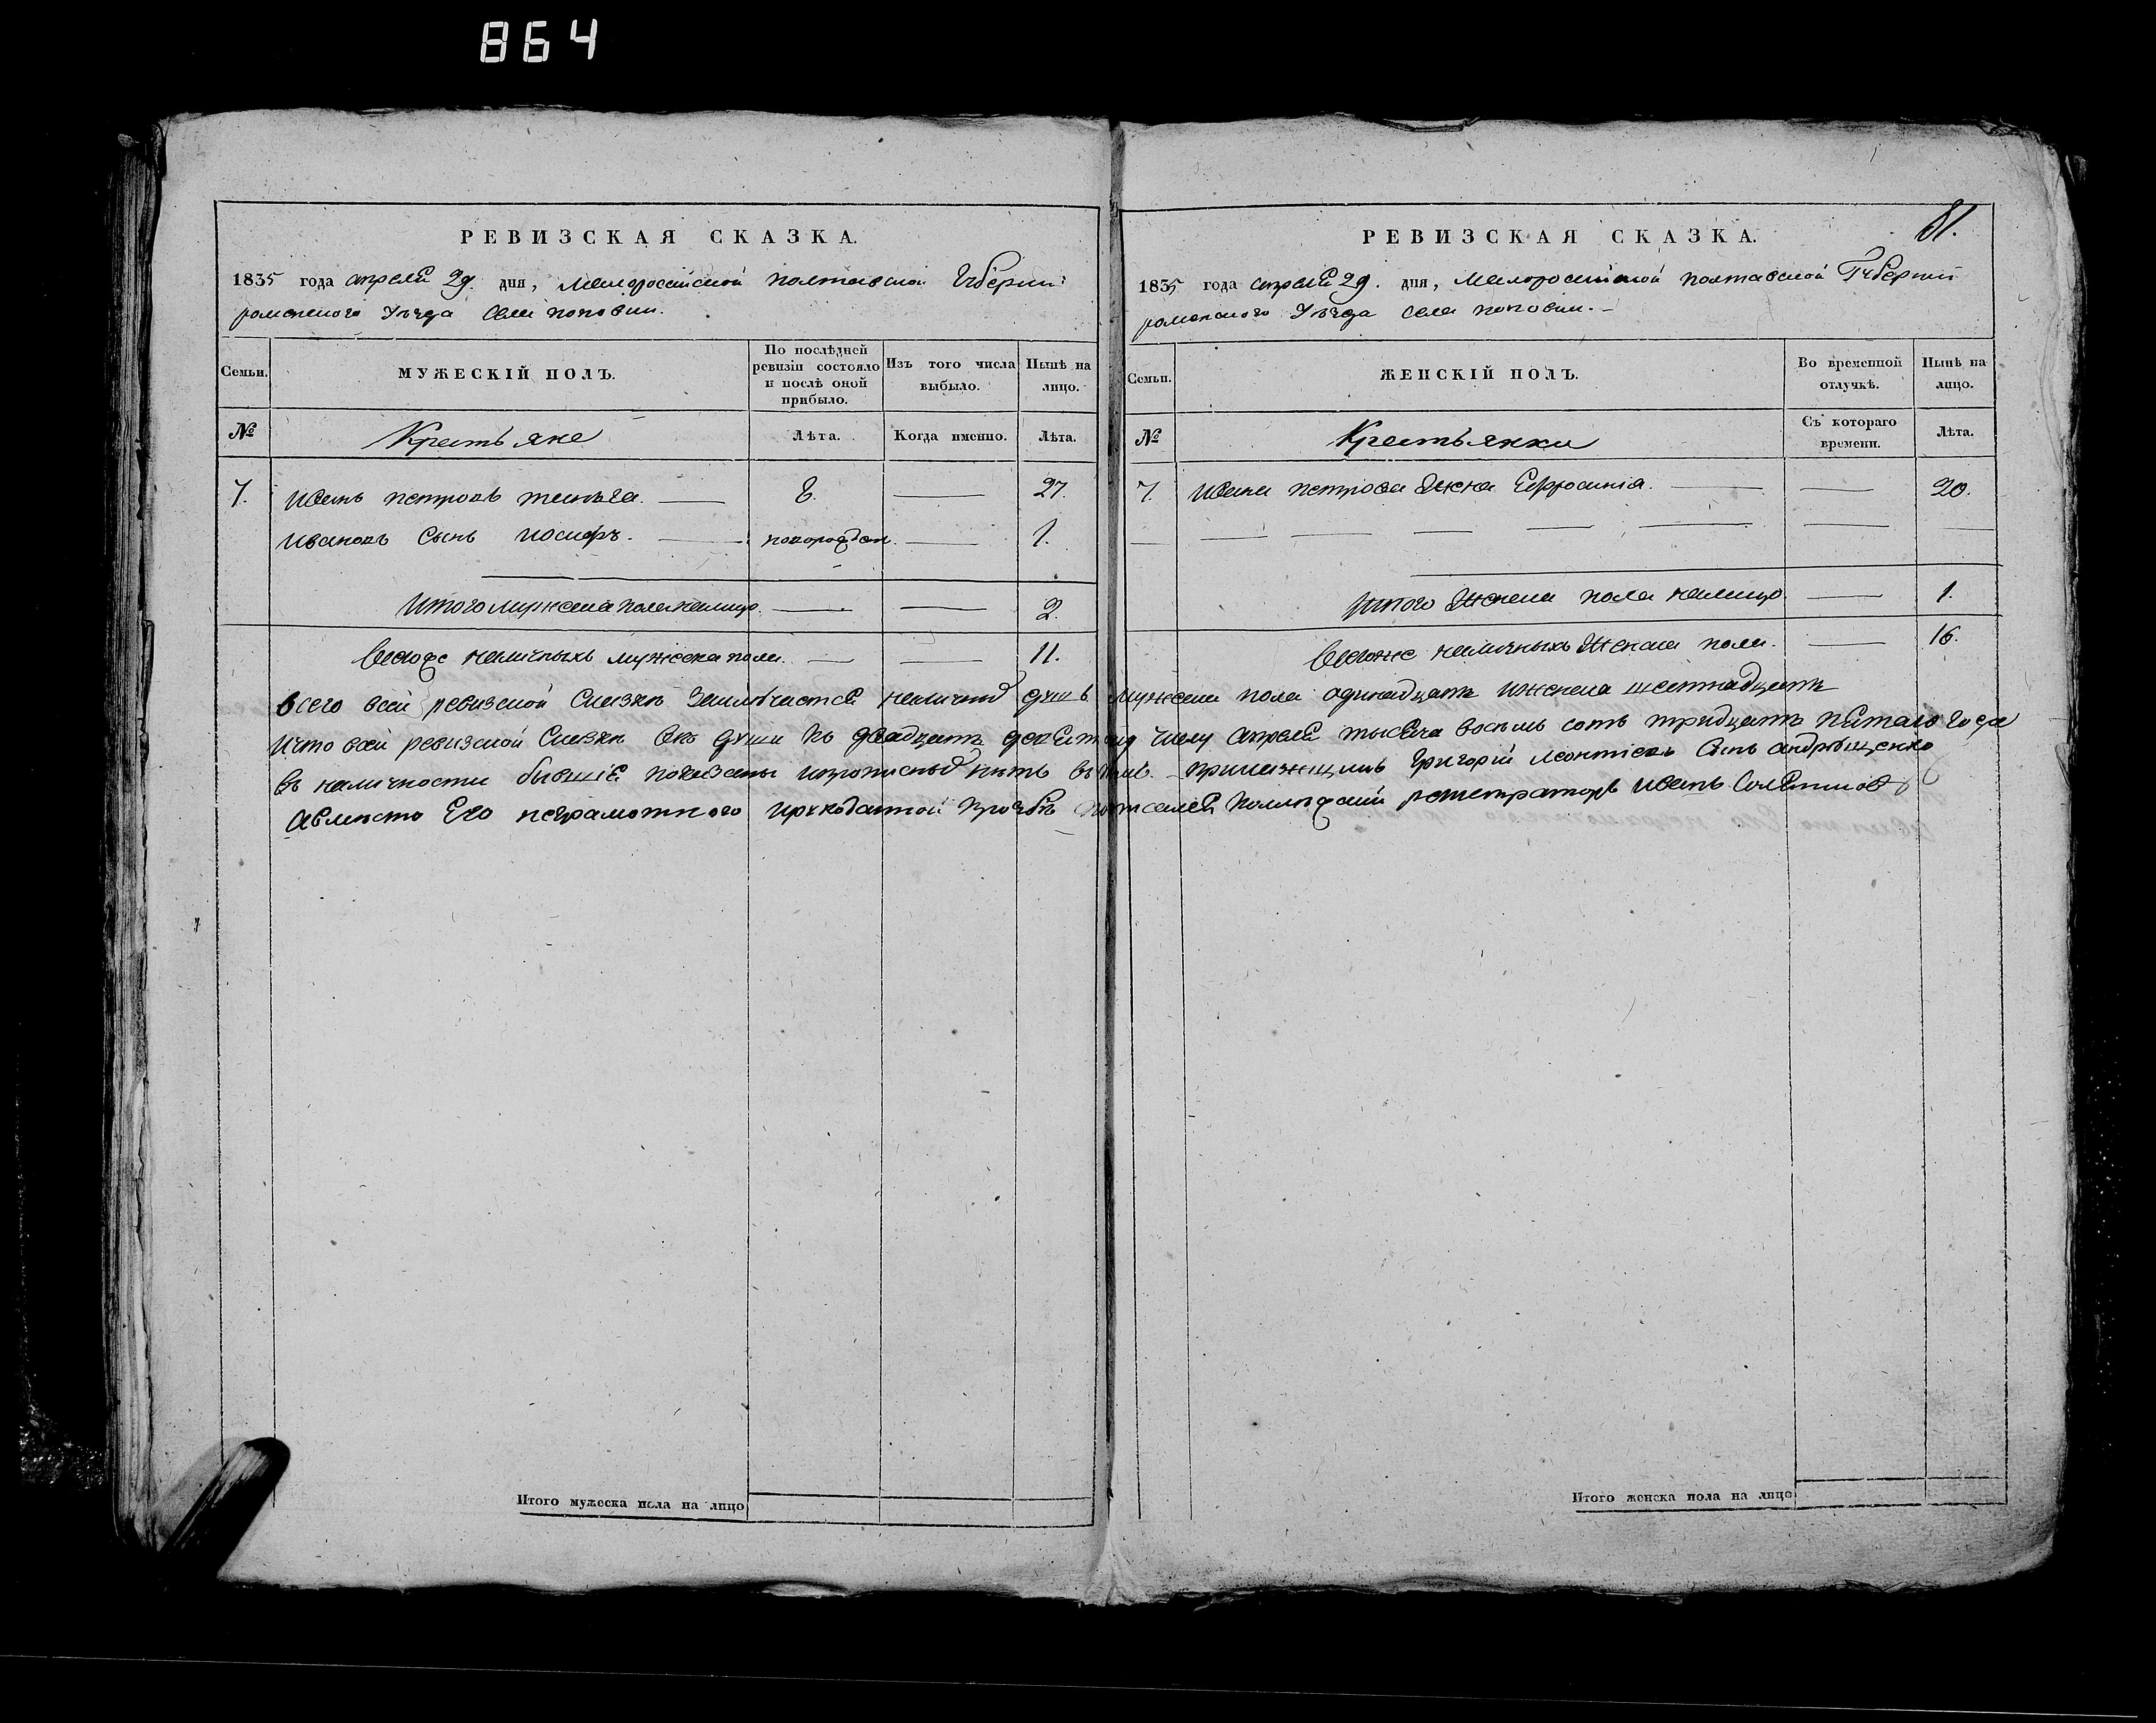 864
РЕВИЗСКАЯ СКАЗКА.
1835 года апреля 29. дня, Малороссийской полтавской Губернии
роменского Уезда села поповки.
Семьи.
МУЖЕСКІЙ ПОЛЪ.
По послѣдней ревизіи состояло и послѣ оной прибыло.
Изъ того числа выбыло.
Нынѣ на лицо.
№
Крестьяне
Лѣта.
Когда именно.
Лѣта.
7. Иванъ петровъ 8. 27.
Ивановъ Сынъ Иосифъ. новорожден. 1.
Итого мужеска пола налицо. 2.
наличныхъ мужеска пола. 11.
Итого мужеска пола на лицо
81.
РЕВИЗСКАЯ СКАЗКА.
1835 года апреля 29. дня, Малороссийской полтавской Губернии
роменского Уезда села поповки.
Семьи.
ЖЕНСКІЙ ПОЛЪ.
Во временной отлучкѣ.
Нынѣ на лицо.
№
Крестьянки
Съ котораго времени.
Лѣта.
7. Ивана петрова Жена Ефросинія. 20.
Итого Женска пола налицо 1.
наличныхъ Женска пола. 16.
всего всей ревизской Сказки наличныхъ душъ мужеска пола одинадцать Иженска шестнадцать
Ито всей ревизской Сказки душъ Къ двадцать девятому числу апреля тысяча восемь сотъ тридцать пятаго года
въ наличности бывшіе показаны Григорій леонтіевъ Сынъ андрѣщенко
Авместо Его неграмотного прозбѣ регистраторъ Иванъ
Итого женска пола на лицо